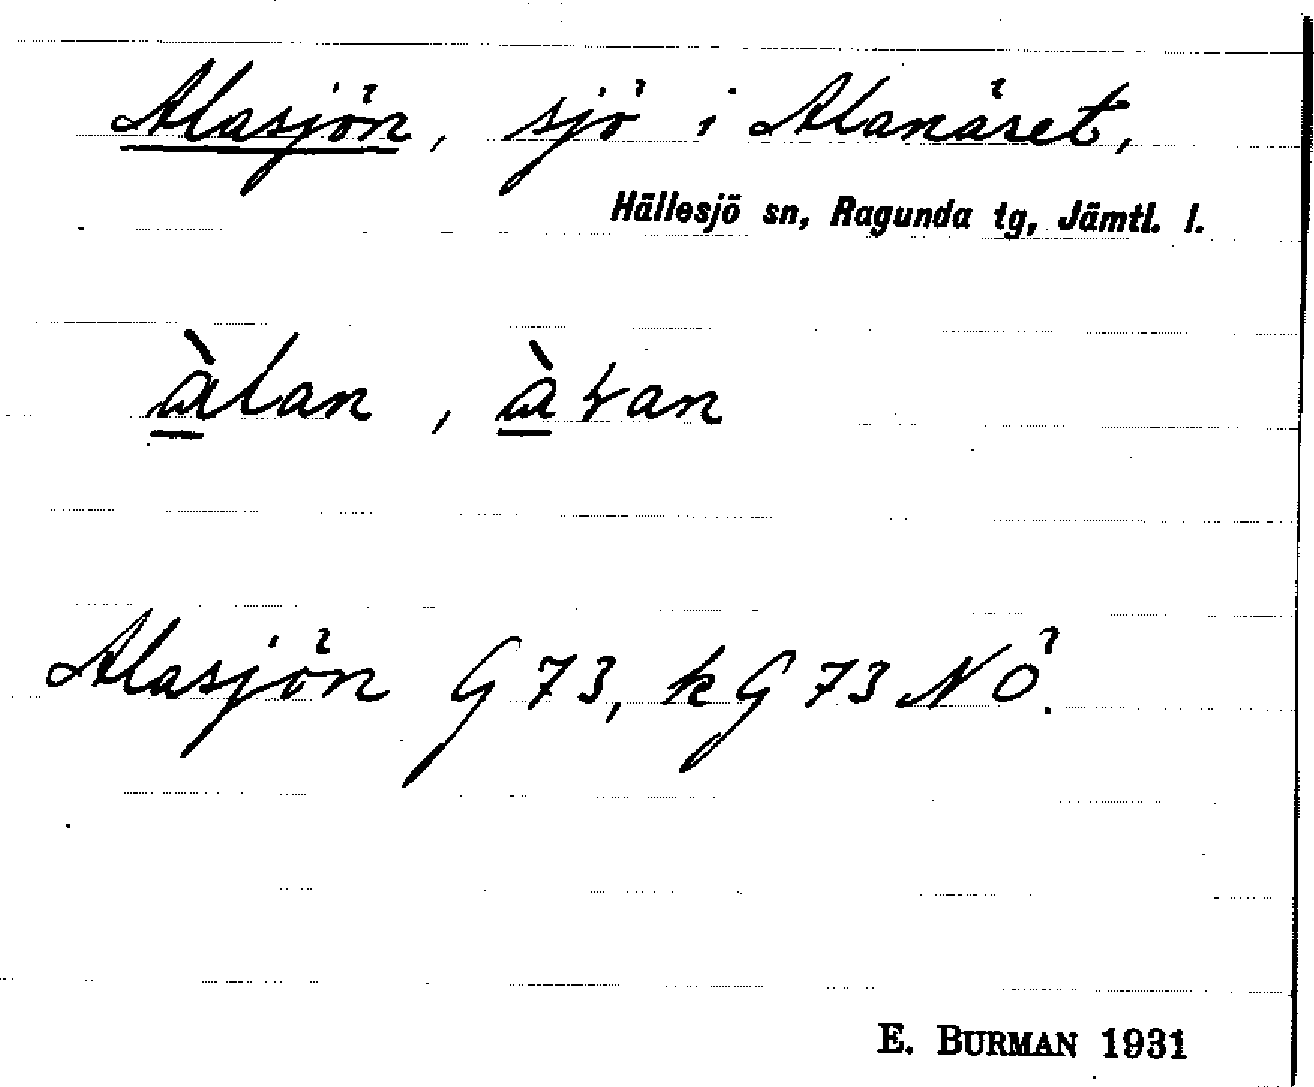 Alasjön, sjö i Alanäset,
Hällesjö sn, Ragunda tg, Jämtl. l.
àlan, àƚan
Alasjön G 73, kG 73 NÖ.
E. BURMAN 1931